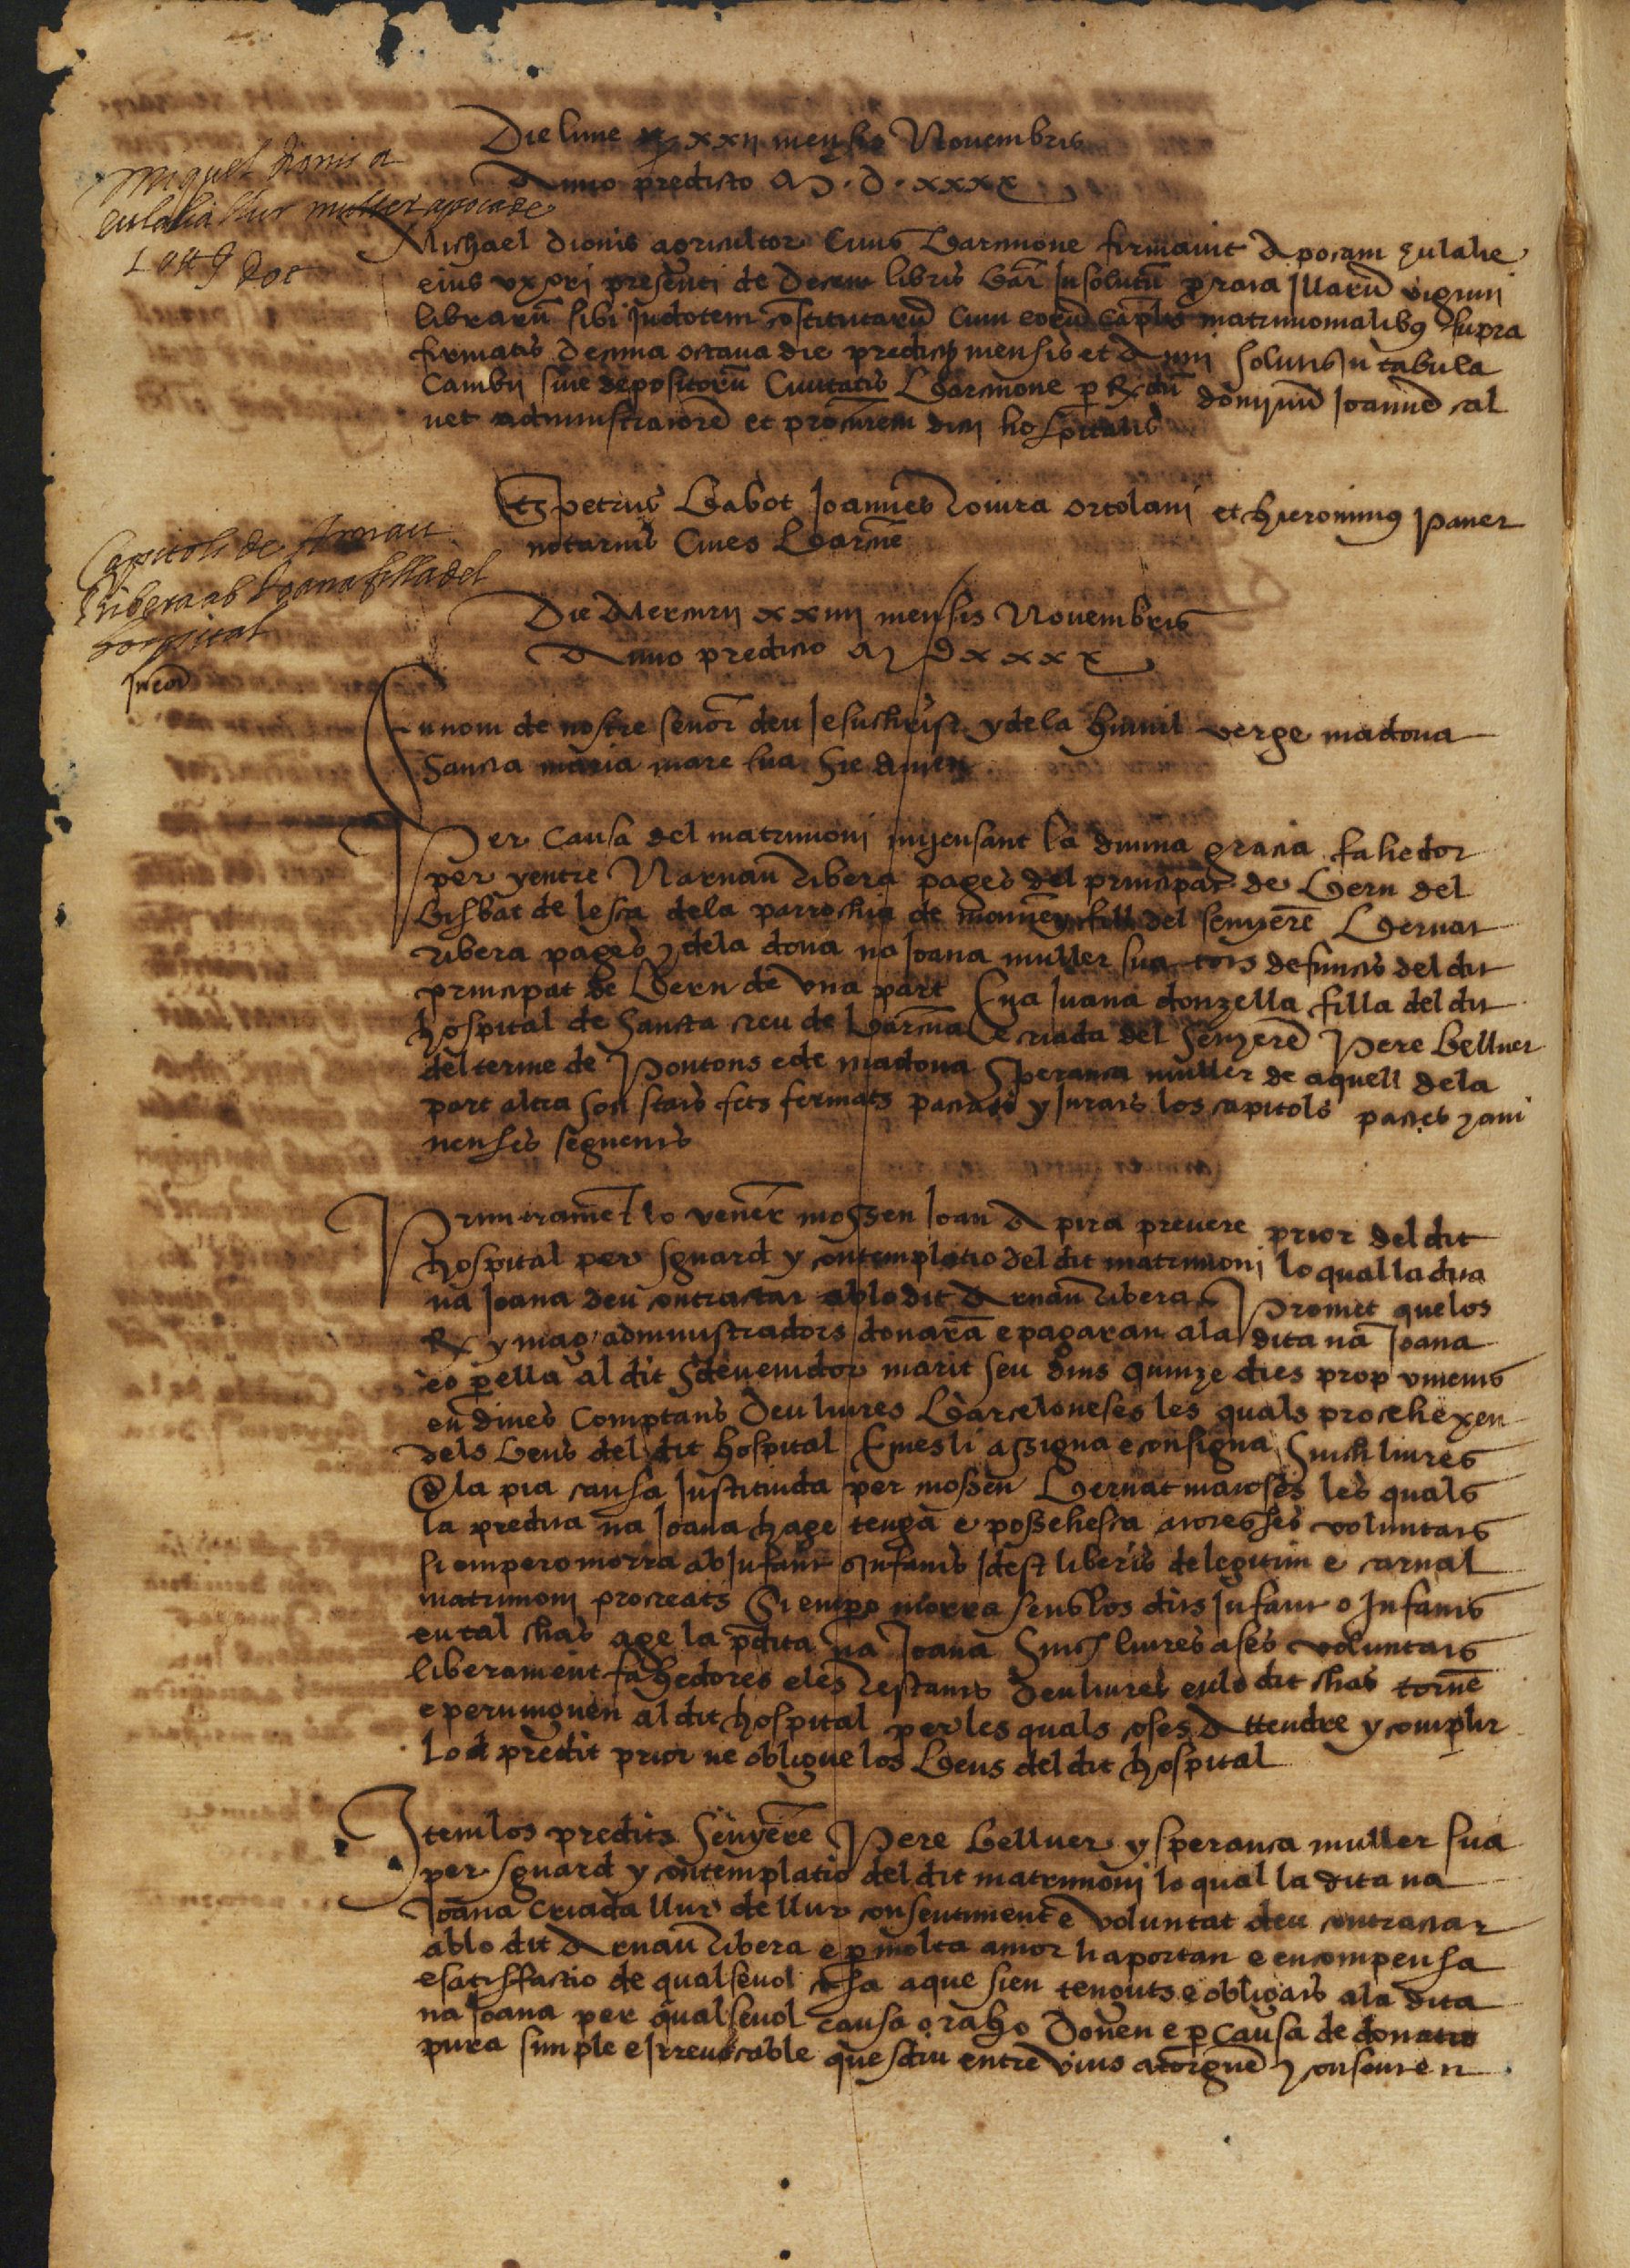 Die lune xxij mensis Novembris
Anno predicto M D xxxx
Miquel Dionis a
eulalia sur muller apoca de
10 ll g dot
Michael Dionis agricultor Civis Barcinone firmavit Apocam Eulalie
eius uxori presenti de Decem libris Bar In solutũ porata Illarũ viginti
librarũ sibi Indotem cõstitutarũ Cum eorũ capľis matrimonialibus supra
firmatis Decima octava die predicti mensis et Anni solutis In tabula
Cambij sive depositorũ Civitatis Barcinone p Rdũ domjnũ Joannẽ cal
vet administratorẽ et procũrem dicti hospitalis
Ts petrus Babot Joannes Rovira ortolani et hieronimus paner
notarius Cives Barcñe
Capitols de Arnau
Ribera ab Joana filla del
hospital
Die Mercurij xxiiij mensis Novembris
Anno predicto M D xxxx
En nom de nostre señor deu Jesuchrist y dela humil verge madona
Sancta maria mare sua Sie Amen
Per Causa del matrimoni mijensant la divina gracia fahedor
per y entre Narnau ribera pages del principat de Bern del
bisbat de lesca dela parrochia de fill del senyerẽ Bernat
ribera pages y dela dona na Joana muller sua tots defuncts del dit
principat de Bern de una part E na Juana donzella filla del dit
hospital de Sancta creu de Barcña E criada del senyerẽ Pere Bellver
del terme de Pontons e de madona Speranca muller de aquell dela
part altra son stats fets fermats pactats y jurats los capitols pactes y avi
nenses seguents
Primeramẽt lo venẽr mossen Joan Apira prevere prior del dit
hospital per sguard y contemplatio del dit matrimoni lo qual la dita
na Joana deu contractar ablo dit Arnau ribera Promet que los
Rx y mag administradors donarã e pagaran ala dita na Joana
eo p ella al dit sdevenidor marit seu dins quinze dies prop vinents
en dines Comptans Deu liures Barceloneses les quals procehexen
dels bens del dit hospital E mes li assigna e consigna Sinch liures
dla pia causa Instituida per mossen Bernat les quals
la predita na Joana hage tenga e possehesca a totes ses voluntats
si empero morra ab Infant o Infants Idest liberis de legitim e carnal
matrimoni procreats Si empo morra sens los dits Infant o Infants
en tal chas age la pdita na Joana Sinch liures a ses voluntats
liberament fahedores e les restants Deu liures en lo dit chas tornẽ
e pervinguen al dit hospital per les quals coses Attendre y complir
Lo predit prior ne obligue los Bens del dit hospital
Item los predits Senyẽre Pere Bellver y speranca muller sua
per sguard y contemplatio del dit matrimoni lo qual la dita na
Joana Criada llur de llur consentiment e voluntat deu contractar
ablo dit Arnau ribera e p molta amor li aportan e en compensa
e satisffactio de qualsevol cosa a que sien tenguts e obligats ala dita
na Joana per qualsevol causa o raho Donen e p causa de donatio
pura simple e Irrevocable que s diu entre vius atorguẽ y consenten